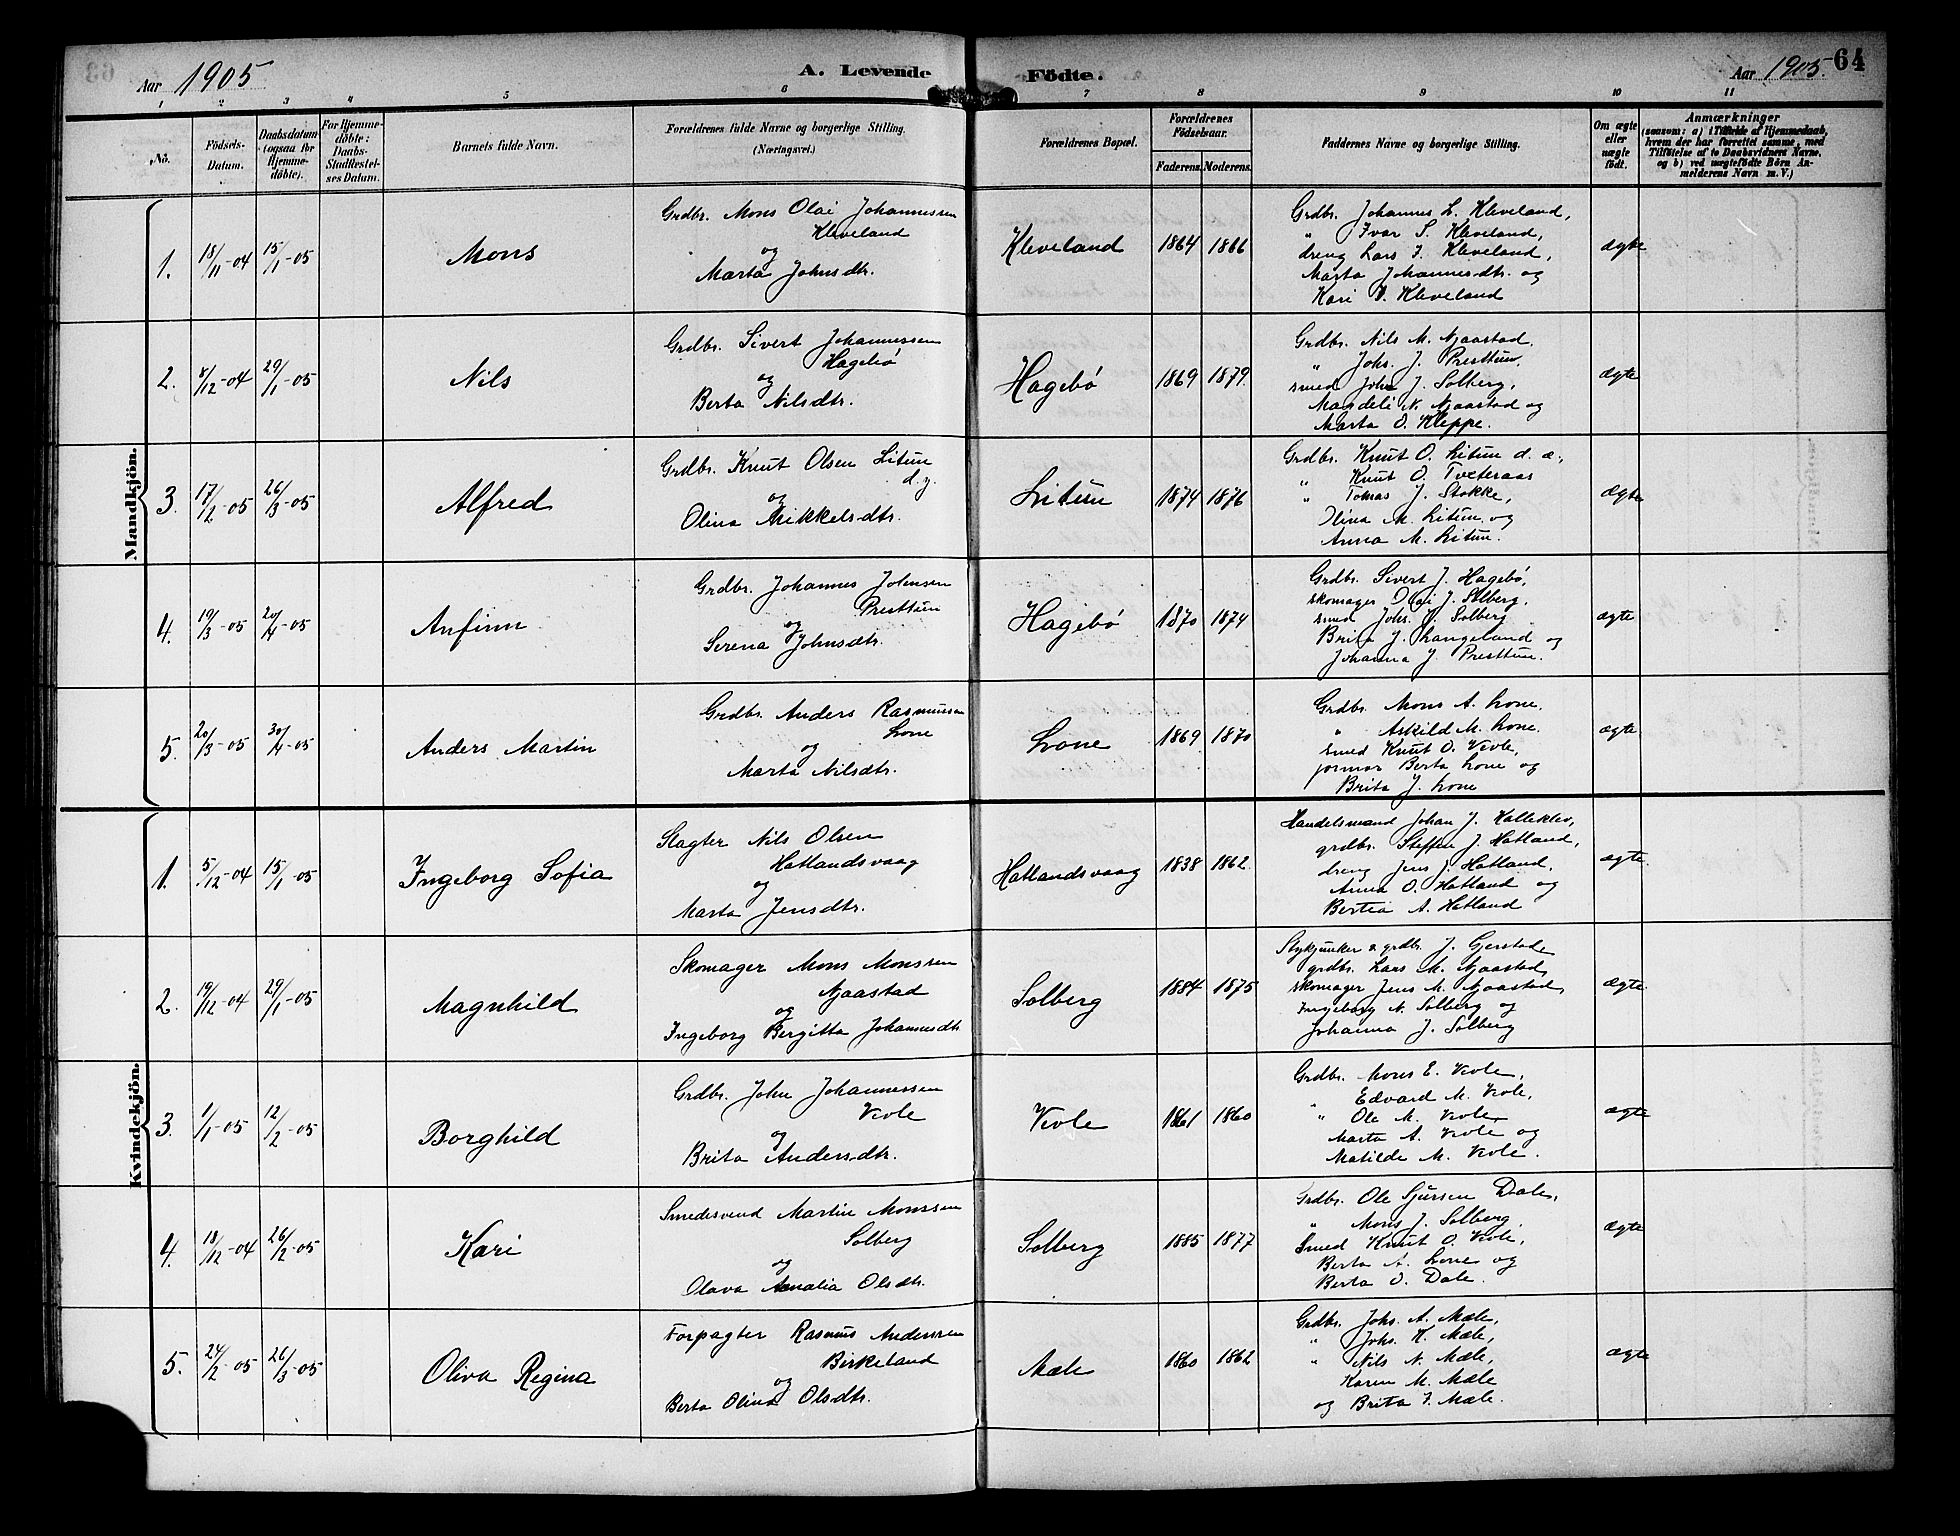 Aar 1905
A. Levende Födte.
Aar 1905. 64
1 2 3 4 5 6 7 8 9 10 11
No.
Födsels-
Datum.
Daabsdatum
(ogsaa for
Hjemme-
döbte).
For Hjemme-
döbte:
Daabs-
Stadfæstel-
ses Datum.
Barnets fulde Navn.
Forældrenes fulde Navne og borgerlige Stilling.
(Næringsvei.)
Forældrenes Bopæl.
Forældrenes
Födselsaar.
Faderens. Moderens.
Faddernes Navne og borgerlige Stilling.
Om ægte
eller
uægte
født.
Anmærkninger
(saasom: a) i Tilfælde af Hjemmedaab,
hvem der har forrettet samme, med
Tilföielse af to Daabsvidners Navne,
og b) ved uægtefödte Börn An-
melderens Navn m. V.)
Mandkjön.
1. 18/11-04 15/1-05 Mons
Grdbr. Mons Olai Johannessen
Kleveland
og
Marta Johnsdtr.
Kleveland 1864 1866
Grdbr. Johannes L. Kleveland,
" Ivar S. Kleveland,
dreng Lars J. Kleveland,
Marta Johannesdtr. og
Kari O. Kleveland
ægte
2. 8/12-04 29/1-05 Nils
Grdbr. Sivert Johannessen
Hagebø
og
Berta Nilsdtr.
Hagebø 1869 1879.
Grdbr. Nils M. Njaastad.
" Johs. J. Presttun,
smed John J. Solberg,
Mandeli N. Njaastad og
Marta O. Kleppe.
ægte
3. 17/2-05 26/3-05 Alfred
Grdbr. Knut Olsen Litun
d. y.
og
Olina Mikkelsdtr.
Litun 1874 1876
Grdbr. Knut O. Litun d. æ.,
" Knut O. Tveteraas
" Tomas J. Stokke,
Olina M. Litun og
Anna M. Litun.
ægte
4. 19/3-05 20/4-05 Anfinn
Grdbr. Johannes Johnsen
Presttun
og
Serena Johnsdtr.
Hagebø 1870 1874
Grdbr. Sivert J. Hagebø,
skomager Olai J. Solberg,
smed Johs. J. Solberg
Brita J. Langeland og
Johanna J. Presttun.
ægte
5. 20/3-05 30/4-05 Anders Martin
Grdbr. Anders Rasmussen
Lone
og
Marta Nilsdtr.
Lone 1869 1870
Grdbr. Mons A. Lone.
" Askild M. Lone.
smed Knut O. Vevle,
jormor Berta Lone og
Brita J. Lone
ægte
Kvindekjön.
1. 5/12-04 15/1-05 Ingeborg Sofia
Slagter Nils Olsen
Hatlandsvaag
og
Marta Jensdtr.
Hatlandsvaag 1838 1862.
Handelsmand Johan J. Halleklev,
grdbr. Steffen J. Hatland,
dreng Jens J. Hatland,
Anna O. Hatland og
Bertea A. Hatland
ægte
2. 19/12-04 29/1-05 Magnhild
Skomager Mons Monssen
Njaastad
og
Ingeborg Bergitta Johannesdtr
Solberg 1884 1875
Stykjunker & grdbr. J. Gjerstad,
grdbr. Lars M. Njaastad,
skomager Jens M. Njaastad,
Ingeborg N. Solberg og
Johanna J. Solberg
ægte
3. 1/1-05 12/2-05 Borghild
Grdbr. John Johannessen
Vevle
og
Brita Andersdtr.
Vevle 1861 1860
Grdbr. Mons E. Vevle,
" Edvard M. Vevle,
" Ole M. Vevle
Marta A. Vevle og
Matilde M. Vevle.
ægte
4. 18/12-04 26/2-05 Kari
Smedesvend Martin Monssen
Solberg
og
Olava Amalia Olsdtr.
Solberg 1885 1877
Grdbr. Ole Sjursen Dale,
" Mons J. Solberg.
Smed Knut O. Vevle,
Berta A. Lone og
Berta O. Dale.
ægte
5. 24/2-05 26/3-05 Oliva Regina
Forpagter Rasmus Anderssen
Birkeland
og
Berta Olina Olsdtr.
Mæle 1860 1862
Grdbr. Johs. A. Mæle,
" Johs. K. Mæle,
" Nils N. Mæle,
Karen M. Mæle
og Brita I. Mæle.
ægte